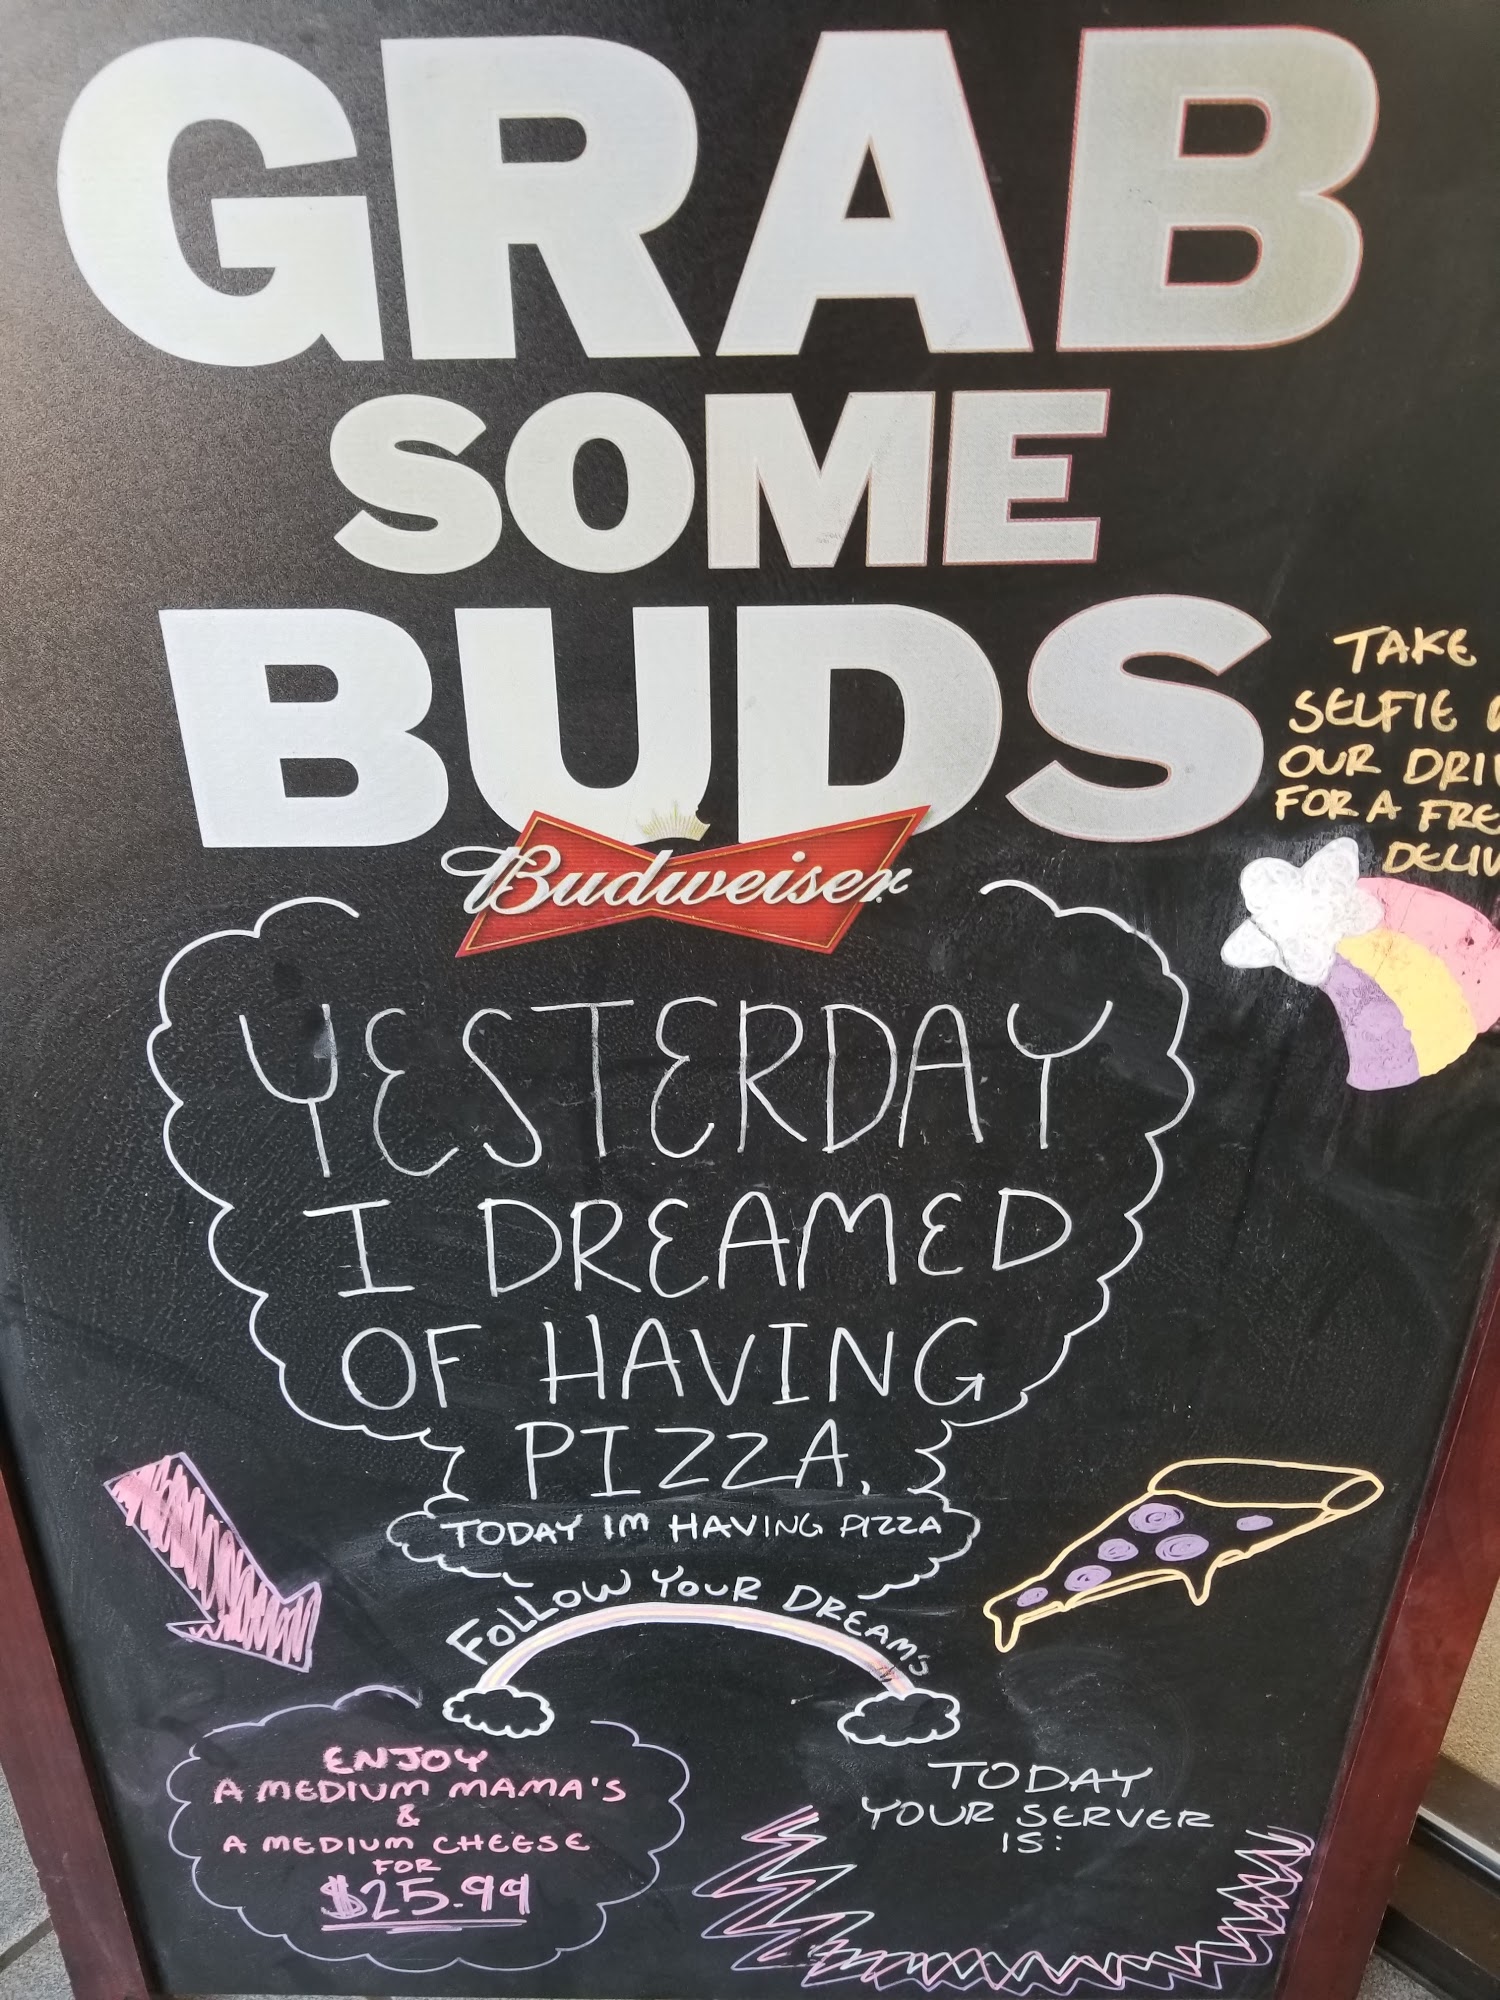 GRAB
SOME
BUDS
Budweiser
TAKE
SELFIE
OUR
FOR A
YESTERDAY
I DREAMED
OF HAVING
PIZZA,
TODAY IM HAVING PIZZA
FOLLOW YOUR DREAMS
ENJOY
A MEDIUM MAMA'S
&
A MEDIUM CHEESE
FOR
$25.99
TODAY
YOUR SERVER
IS: